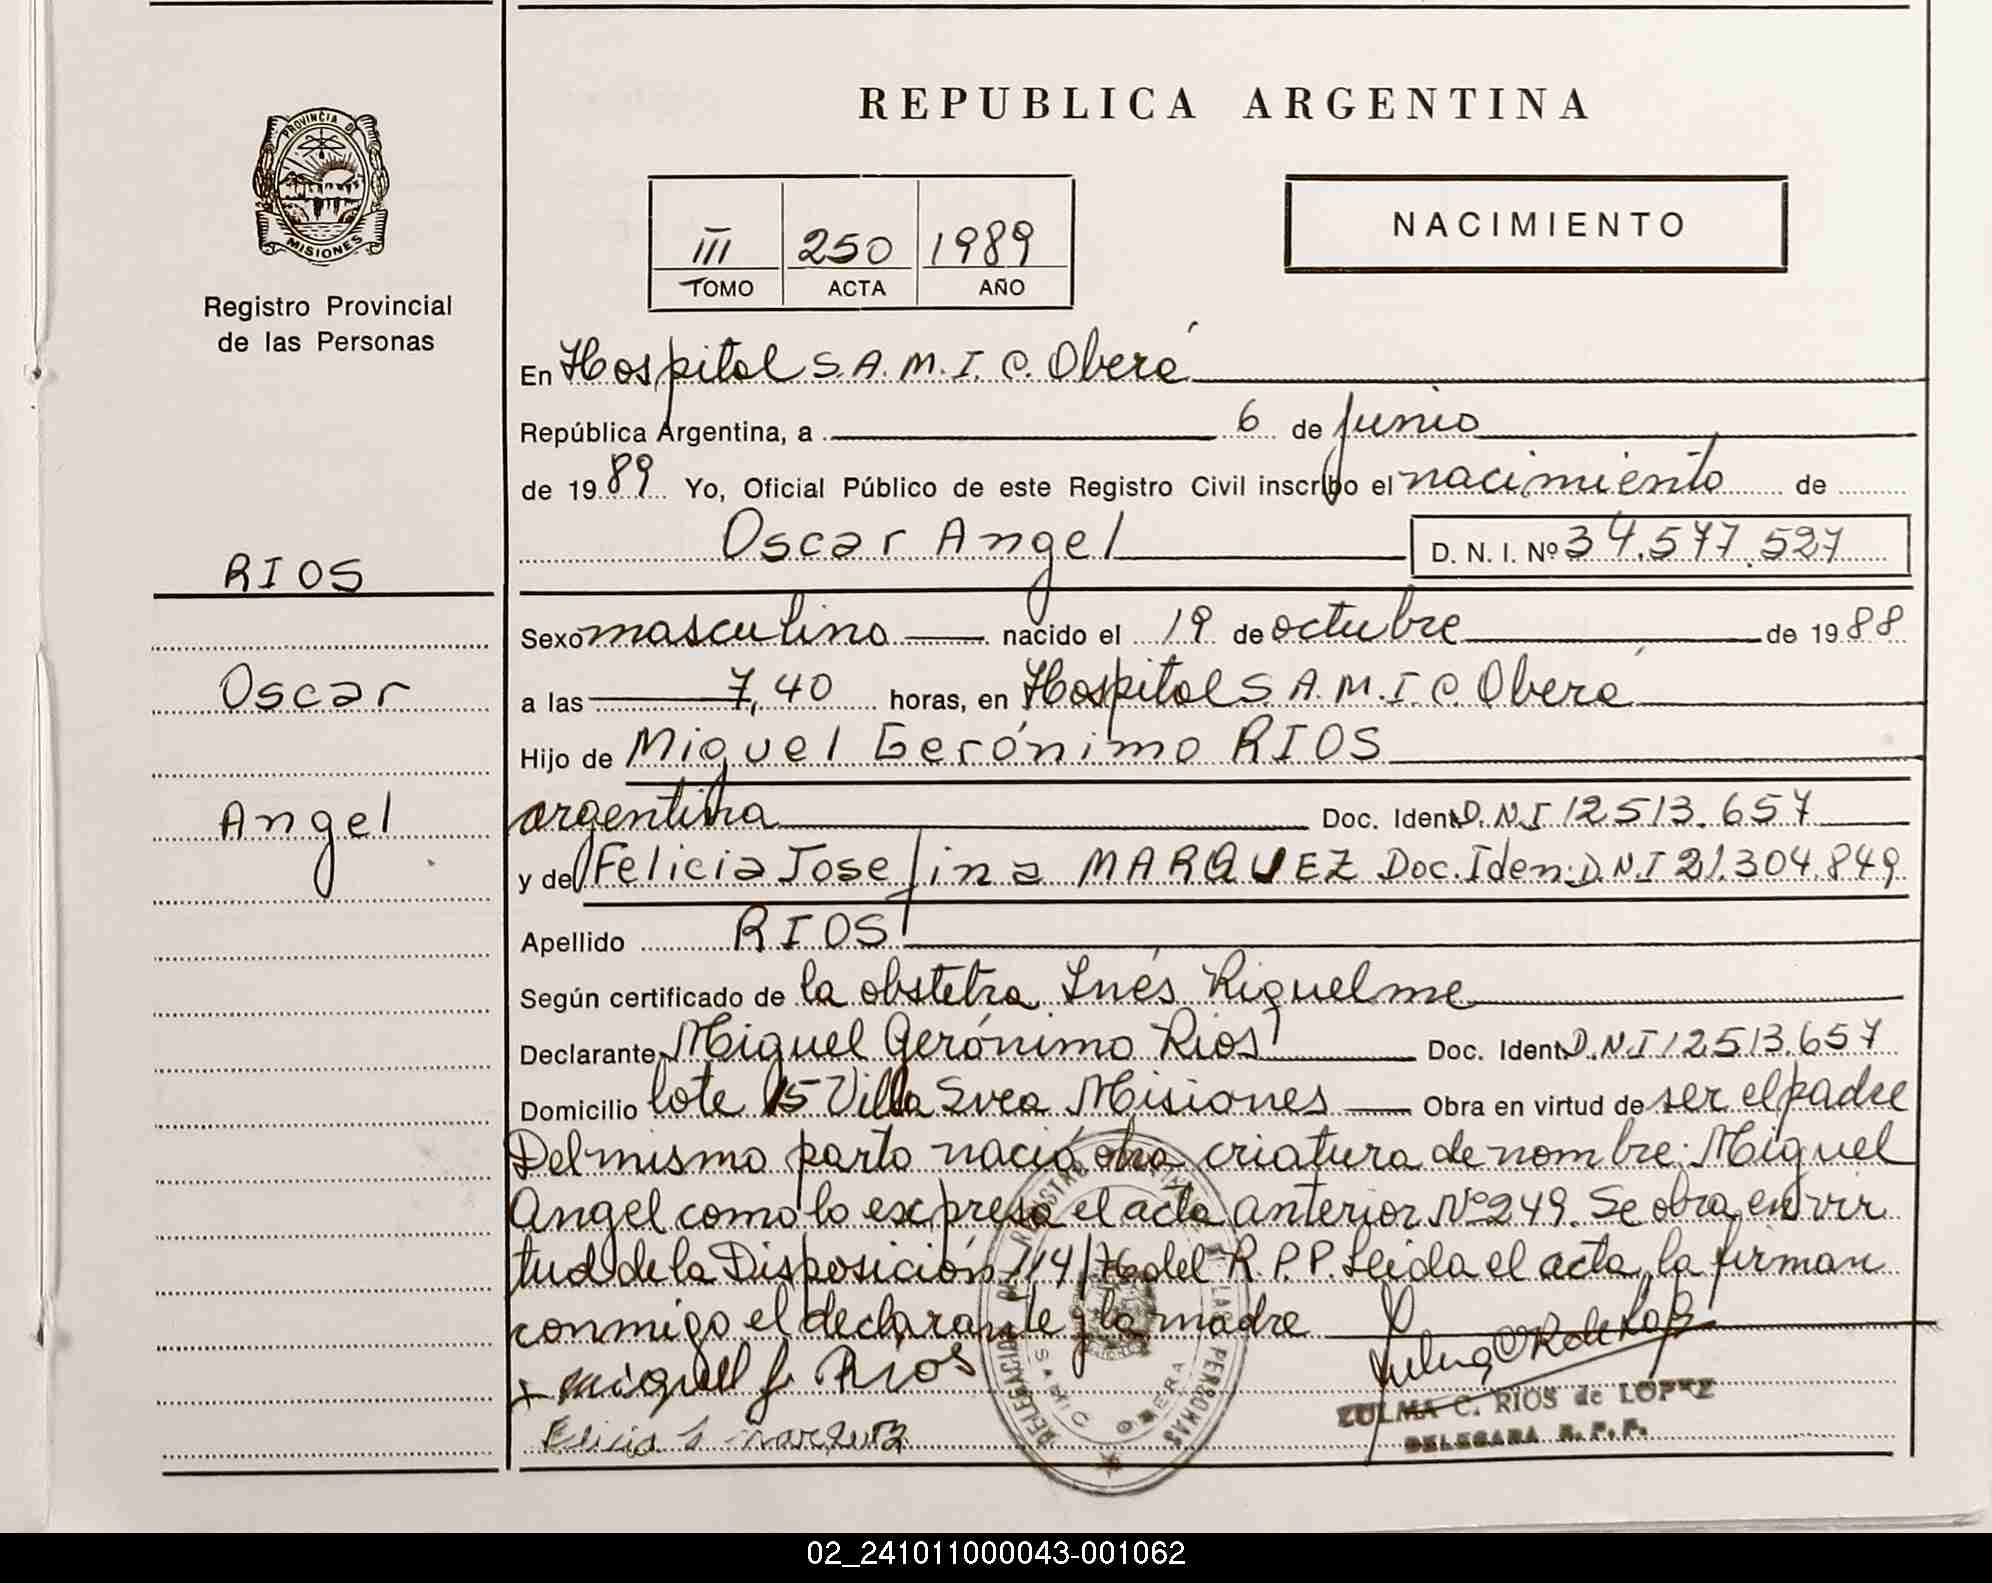 REPUBLICA ARGENTINA
PROVINCIA DE
MISIONES
Registro Provincial
de las Personas
III 250 1989
TOMO ACTA AÑO
NACIMIENTO
En Hospital S.A.M.I.C. Oberá
República Argentina, a 6 de junio
de 1989 Yo, Oficial Público de este Registro Civil inscribo el nacimiento de
Oscar Angel D. N. I. Nº 34.577.527
RIOS
Oscar
Angel
Sexo masculino nacido el 19 de octubre de 1988
a las 7,40 horas, en Hospital S.A.M.I.C. Oberá
Hijo de Miguel Gerónimo RIOS
argentina Doc. Ident. D.N.I 12513.657
y de Felicia Josefina MARQUEZ Doc. Iden. D.N.I 21.304.849
Apellido RIOS
Según certificado de la obstetra Inés Riquelme
Declarante Miguel Gerónimo Rios Doc. Ident. D.N.I 12513.657
Domicilio lote 15 Villa Svea Misiones Obra en virtud de ser el padre
Del mismo parto nació otra criatura de nombre: Miguel
Angel como lo expresa el acta anterior Nº 249. Se obra en vir
tud de la Disposición 114/76 del R.P.P. Leida el acta, la firman
conmigo el declarante y la madre
Miguel G. Rios
ZULMA C. RIOS de LOPEZ
DELEGADA R.P.P.
02_241011000043-001062